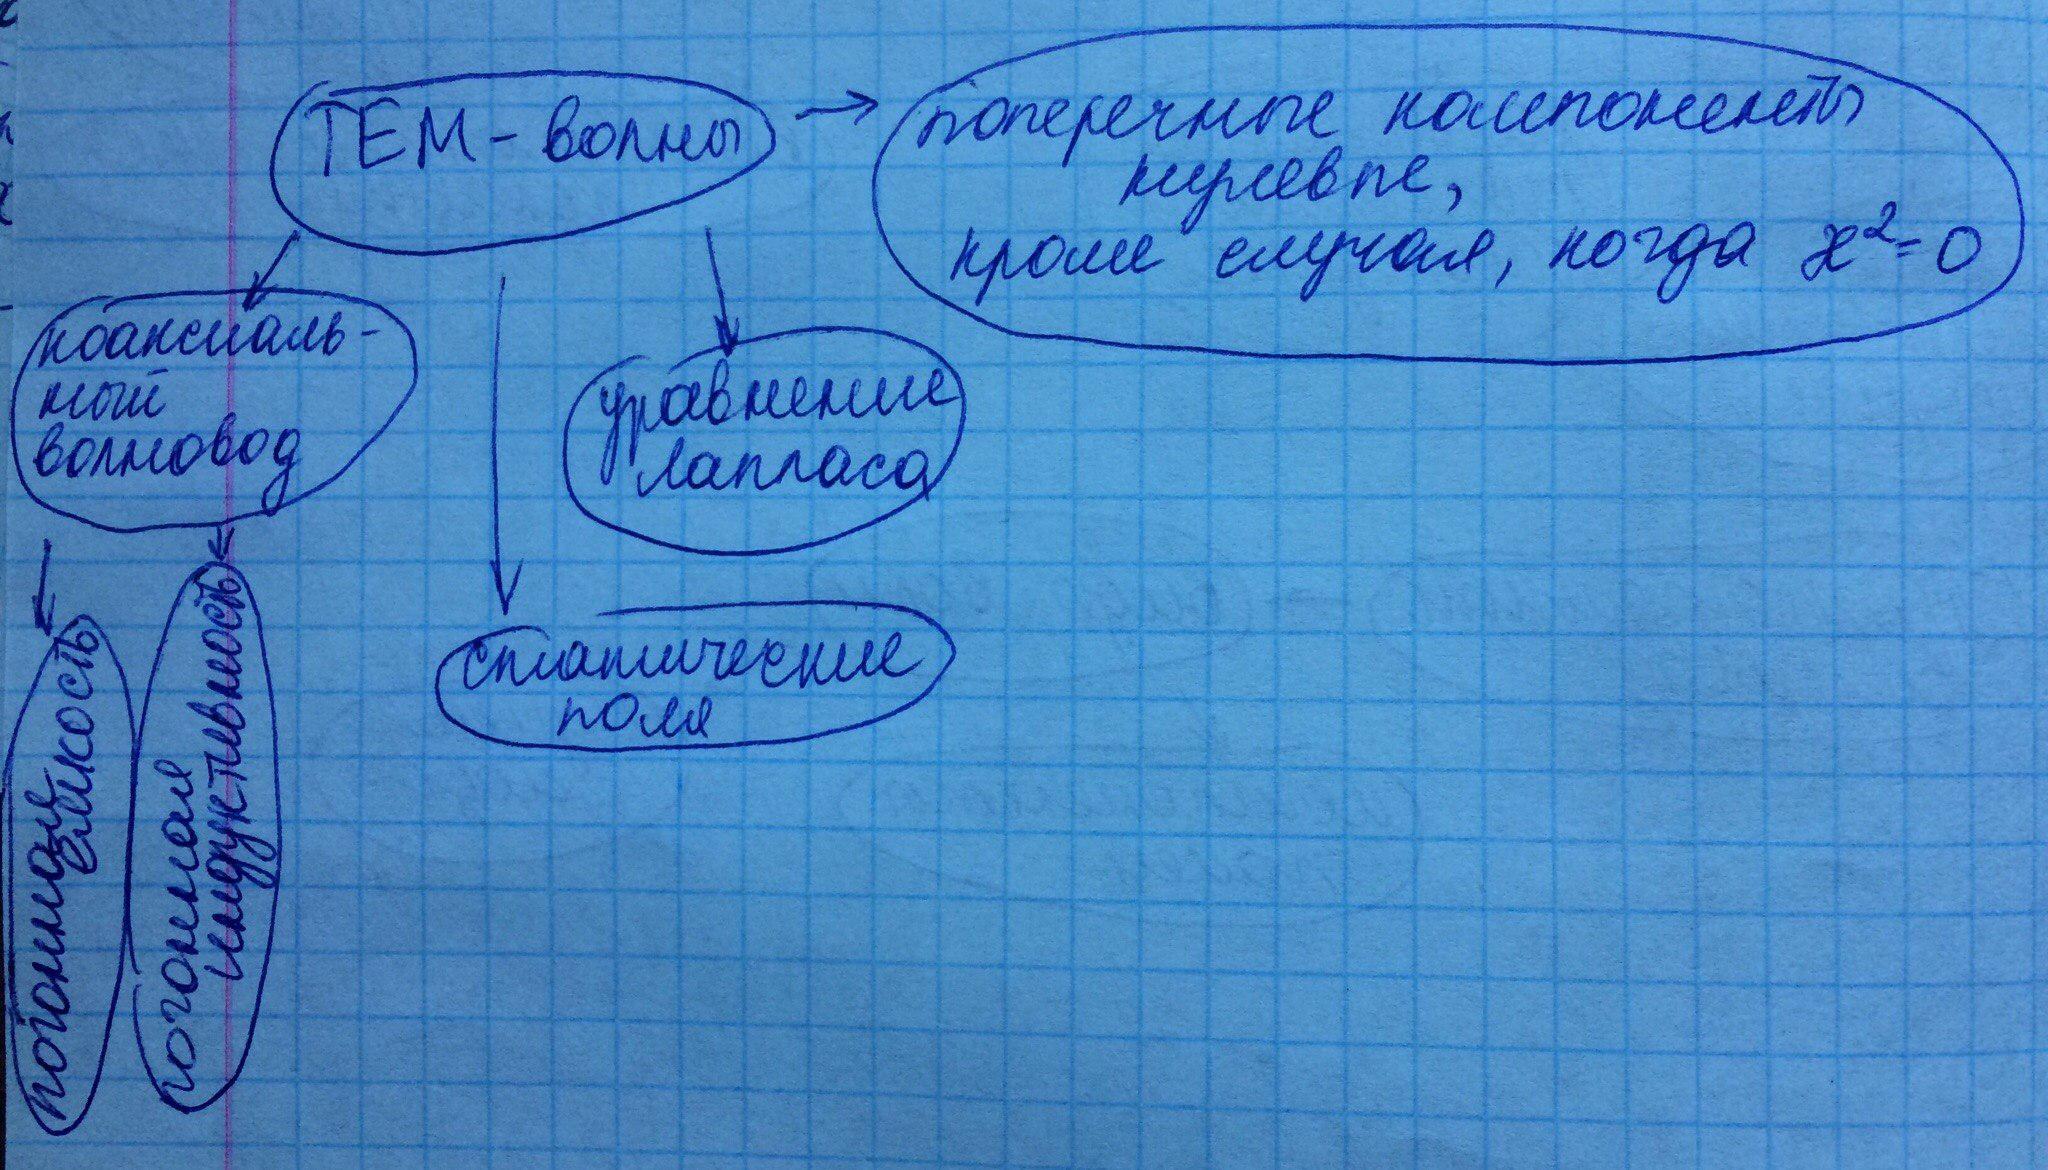 ТЕМ-волны
поперечные компоненты
нулевые,
кроме случая, когда χ²=0
коаксиаль-
ный
волновод
уравнение
Лапласа
статические
поля
погонная
ёмкость
погонная
индуктивность